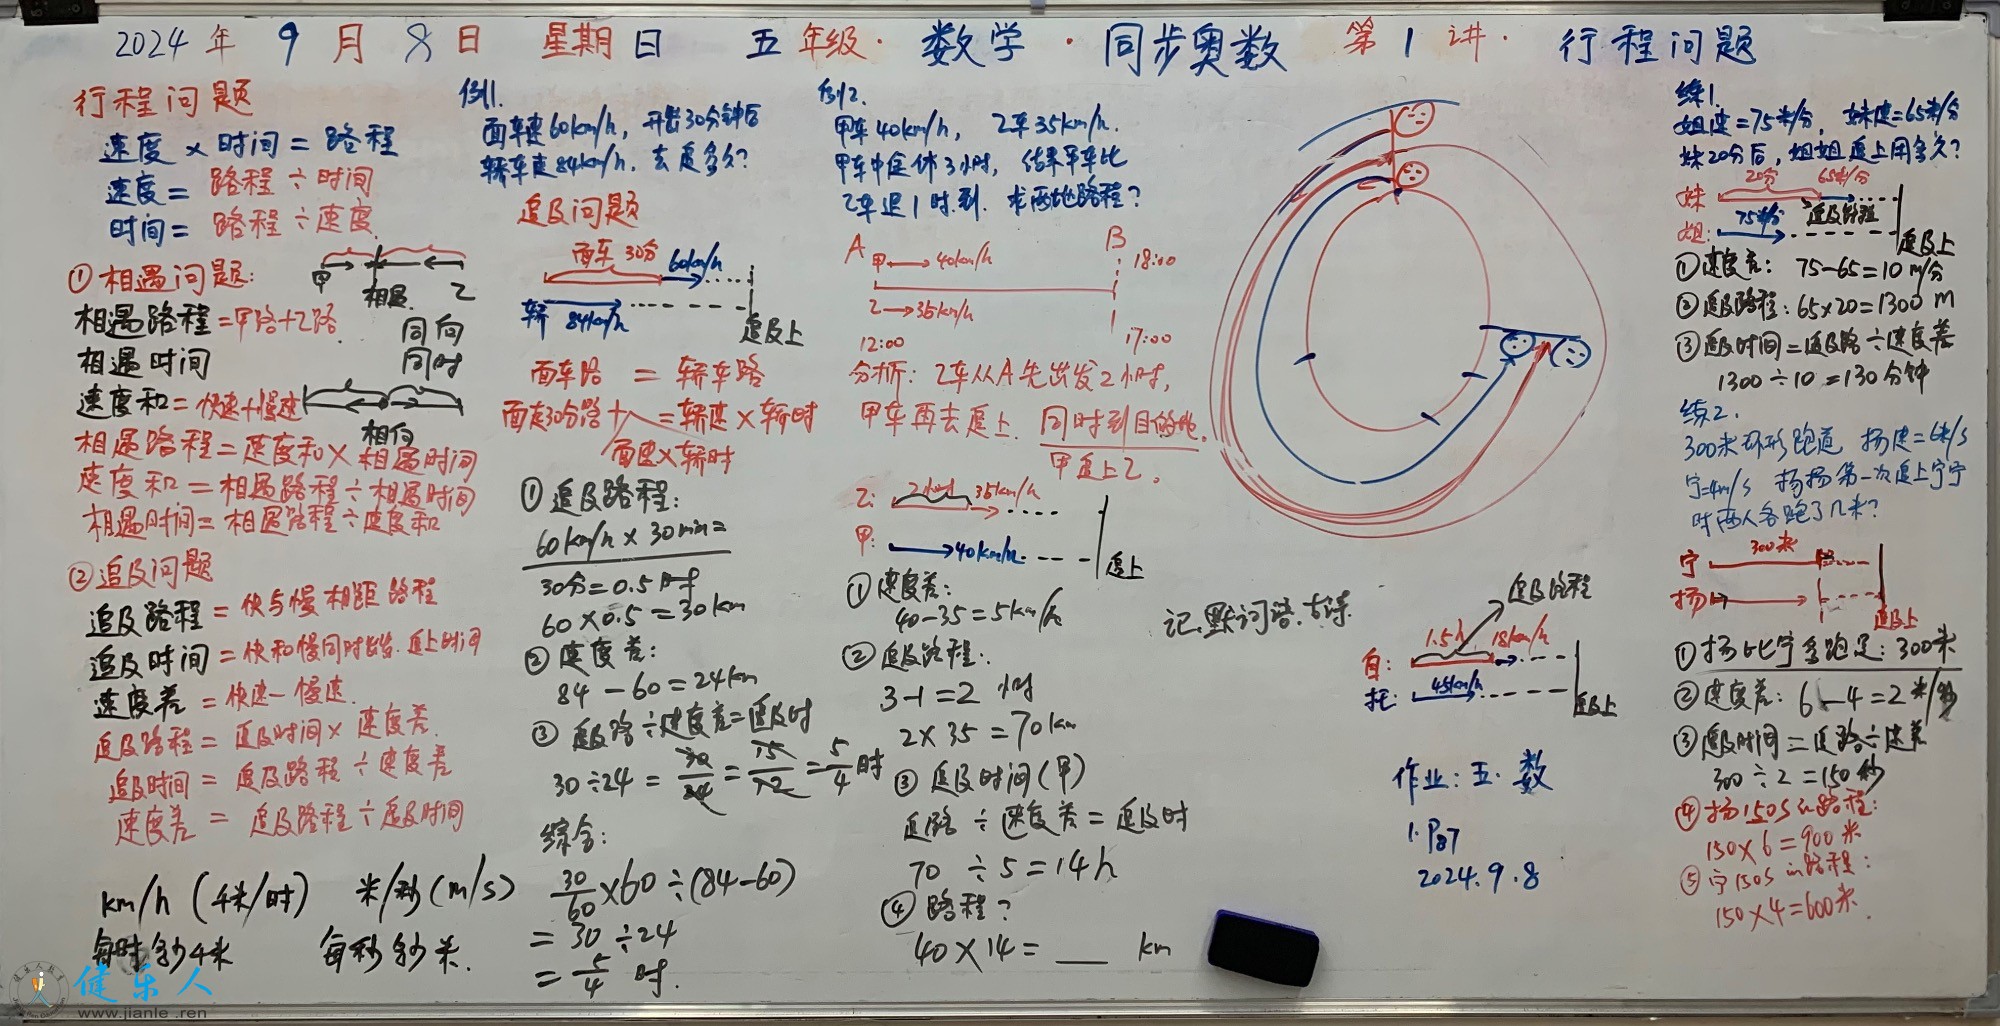 2024年 9月8日 星期日 五年级·数学·同步奥数 第1讲·行程问题
行程问题
速度×时间=路程
速度=路程÷时间
时间=路程÷速度
①相遇问题:
甲 相遇 乙
相遇路程=甲路+乙路
同向
相遇时间
同时
速度和=快速+慢速
相向
相遇路程=速度和×相遇时间
速度和=相遇路程÷相遇时间
相遇时间=相遇路程÷速度和
②追及问题
追及路程=快与慢相距路程
追及时间=快和慢同时出发.追上时间
速度差=快速-慢速
追及路程=追及时间×速度差.
追及时间=追及路程÷速度差
速度差=追及路程÷追及时间
km/h (千米/时) 米/秒(m/s)
每时多少千米 每秒多少米.
例1.
面车速60km/h,开出30分钟后
轿车速84km/h.去追多久?
追及问题
面车 30分 60km/h
轿 84km/h
追及上
面车路=轿车路
面走30分路+ =轿速×轿时
面速×轿时
①追及路程:
60km/h×30min=
30分=0.5时
60×0.5=30km
②速度差:
84-60=24km
③追及路÷速度差=追及时
30÷24=30/24=15/12=5/4时
综合:
30/60×60÷(84-60)
=30÷24
=5/4时.
例2.
甲车40km/h,乙车35km/h.
甲车中途休3小时,结果甲车比
乙车迟1时到.求两地路程?
A B
甲 40km/h 18:00
乙 35km/h
12:00 17:00
分析:乙车从A先出发2小时,
甲车再去追上.同时到目的地.
甲追上乙.
乙: 2小时 35km/h
甲: 40km/h
追上
①速度差:
40-35=5km/h
②追及路程:
3-1=2小时
2×35=70km
③追及时间(甲)
追路÷速度差=追及时
70÷5=14h
④路程?
40×14=___km
记.默词语.古诗.
追及路程
自: 1.5h 18km/h
托: 45km/h
追及上
作业:五·数
1.P87
2024.9.8
练1.
姐速=75米/分,妹速=65米/分
妹20分后,姐姐追上用多久?
妹 20分 65米/分
75米/分 追及路程
姐:
追及上
①速度差:75-65=10m/分
②追及路程:65×20=1300m
③追及时间=追及路÷速度差
1300÷10=130分钟
练2.
300米环形跑道 扬速=6米/s
宁=4m/s 扬扬第一次追上宁宁
时两人各跑了几米?
宁 300米
扬
追及上
①扬比宁多跑足:300米
②速度差:6-4=2米/秒
③追及时间=追路÷速差
300÷2=150秒
④扬150s的路程:
150×6=900米
⑤宁150s的路程:
150×4=600米.
健乐人
www.jianle.ren